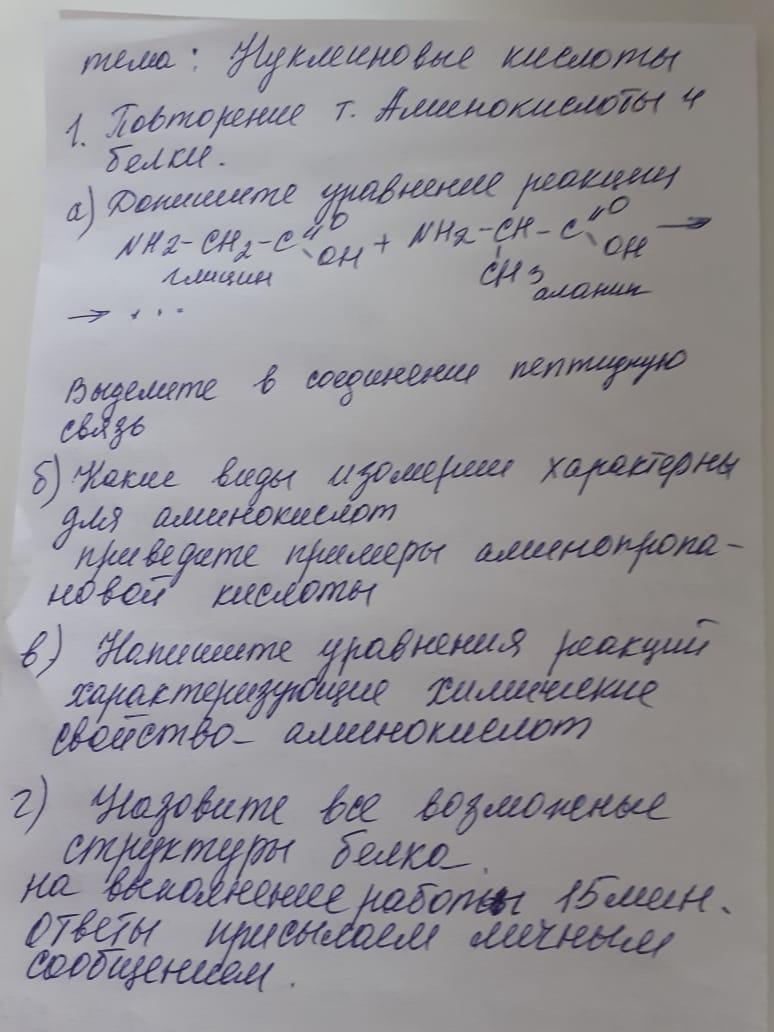 тема: Нуклеиновые кислоты
1. Повторение т. Аминокислоты и
белки.
а) Допишите уравнение реакции
NH2-CH2-C=O OH + NH2-CH-C=O OH →
глицин CH3 аланин
→ ...
Выделите в соединении пептидную
связь
б) Какие виды изомерии характерны
для аминокислот
приведите примеры аминопропа-
новой кислоты
в) Напишите уравнения реакций
характеризующие химические
свойство- аминокислот
г) Назовите все возможные
структуры белка.
на выполнение работы 15 мин.
ответы присылаем личным
сообщением.